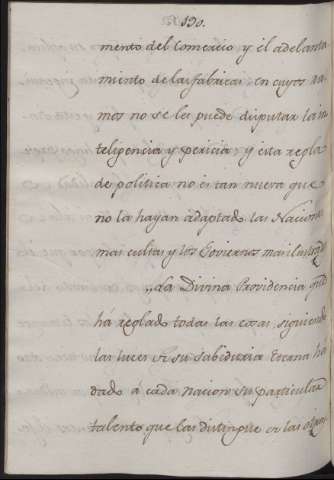 190.
mento del Comercio y el adelanta
miento de las fabricas en cuyos ra-
mos no se les puede disputar la in
teligencia y pericia, y esta regla
de politica no es tan nueva que
no la hayan adaptado las Nacion.s
mas cultas y los Goviernos mas ilustrad.s
"La Divina Providencia que
ha reglado todas las cosas, siguiendo
las luces de su Sabiduria Eterna ha
dado à cada nacion su particular
talento que las distingue de las otras